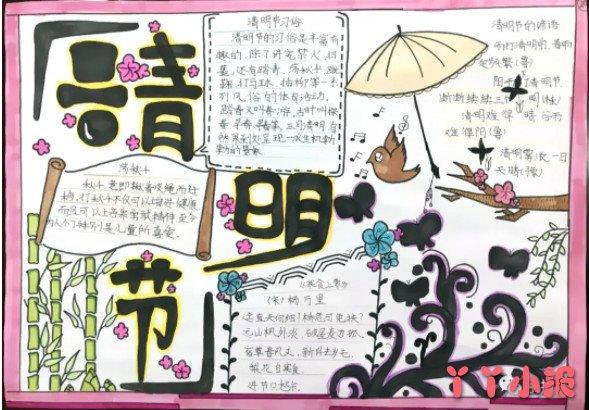 清明节
清明节习俗
清明节的习俗是丰富有
趣的，除了讲究禁火、扫
墓，还有踏青、荡秋千、蹴
鞠、打马球、插柳等一系
列风俗的体育活动。
踏青又叫春游，古时叫探
春、寻春等。三月清明，自
然界到处呈现一派生机勃
勃的景象。
荡秋千
秋千，意即揪着皮绳而迁
移。打秋千不仅可以增进健康
而且可以培养勇敢精神，至今
为人们特别是儿童的喜爱。
清明节的谚语
雨打清明前，
(鲁)
阳
清明节，
断断续续三个
清明难得晴，谷雨
难得阴(鲁)
清明雾浓，一日
天晴
《寒食上冢》
(宋)杨万里
迳直夫何细！桥危可免扶？
远山枫外淡，破屋麦边孤。
宿草春风又，新阡去岁无。
梨花自寒食，
进节只愁余。
丫丫小报